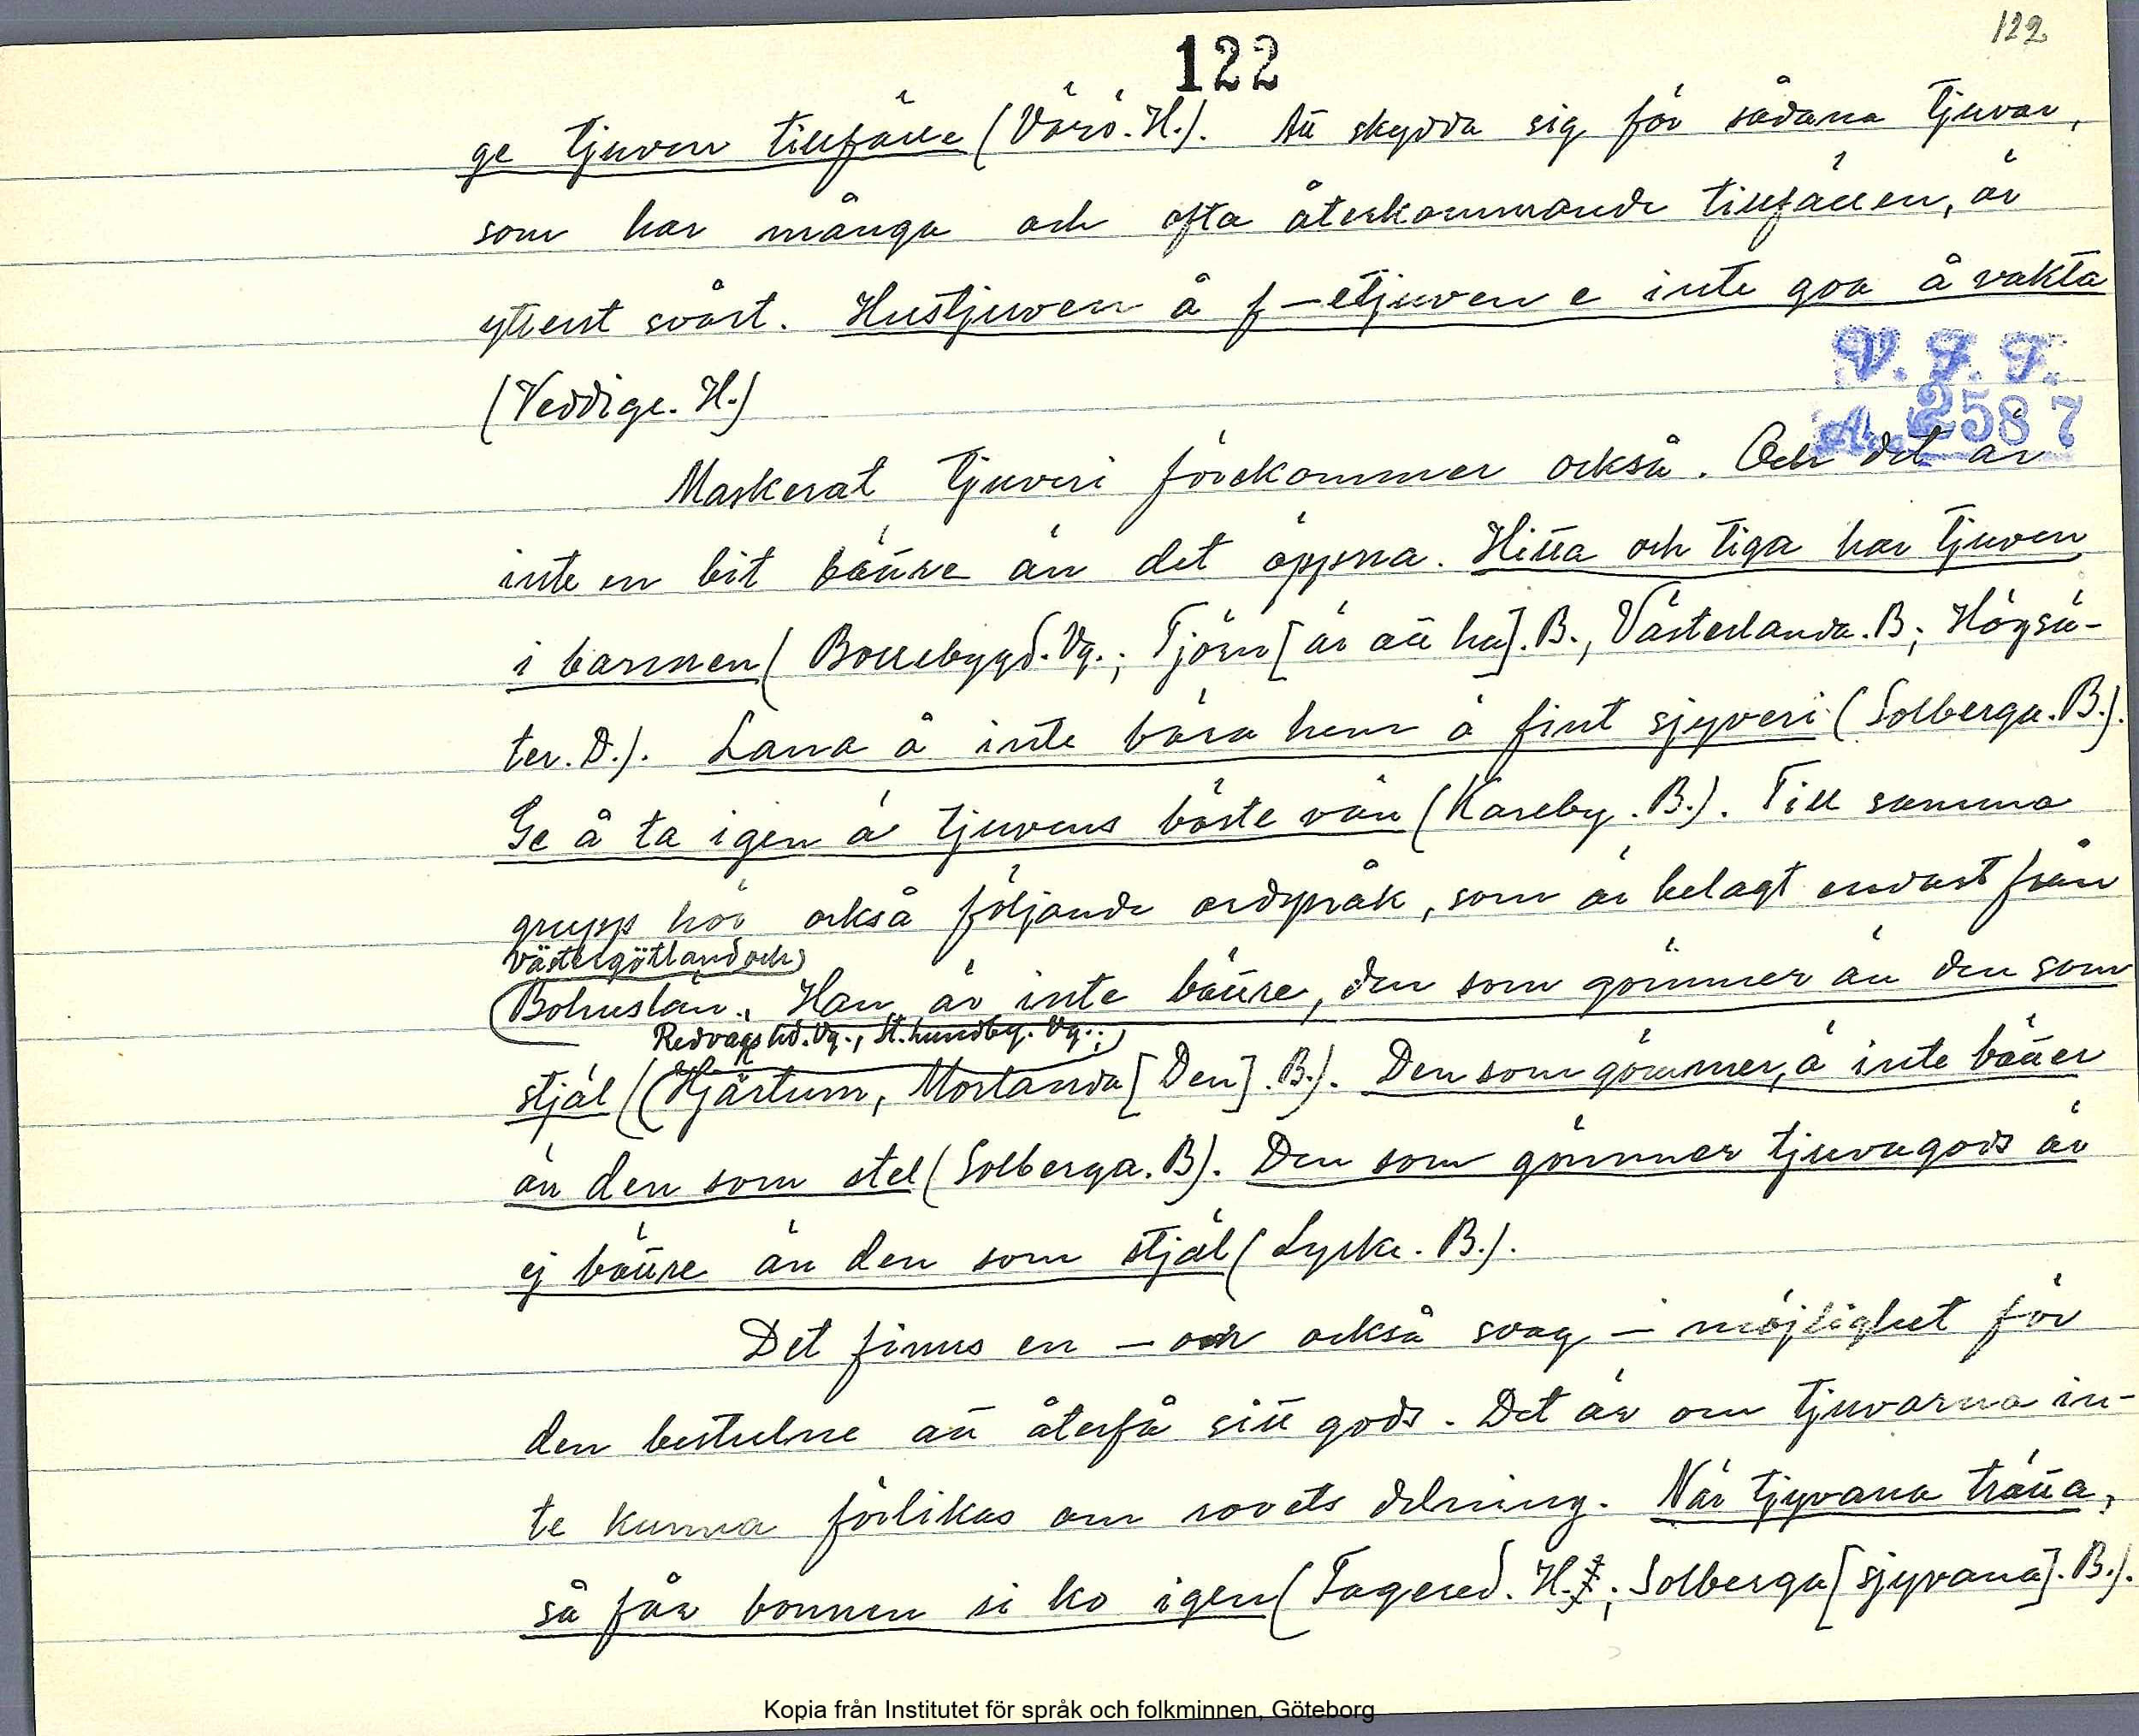 122
122
ge tjuven tillfälle (Värö. H.). Att skydda sig för sådana tjuvar,
som har många och ofta återkommande tillfällen, är
ytterst svårt. Hustjuven å f-etjuven e inte goa å vakta
(Veddige. H.)
V. F. F.
Acc 2587
Maskerat tjuveri förekommer också. Och det är
inte en bit bättre än det öppna. Hitta och tiga har tjuven
i barmen (Bollebygd. Vg.; Tjörn [är att ha]. B., Västerlanda. B; Högsä-
ter. D.). Lana å inte bära hem ä fint sjyveri (Solberga. B.).
Ge å ta igen ä tjuvens bäste vän (Kareby. B.). Till samma
grupp hör också följande ordspråk, som är belagt endast från
Västergötland och
Bohuslän. Han är inte bättre, den som gömmer än den som
Redvägs hd. Vg., St. Lundby. Vg.;
stjäl (Hjärtum, Morlanda [Den]. B.). Den som gömmer, ä inte bätter
än den som stel (Solberga. B). Den som gömmer tjuvagods är
ej bättre än den som stjäl (Lyske. B.).
Det finns en – och också svag – möjlighet för
den bestulne att återfå sitt gods. Det är om tjuvarna in-
te kunna förlikas om rovets delning. När tjyvana trätta,
så får bonnen si ko igen (Fagered. H.; Solberga [sjyvana]. B.).
Kopia från Institutet för språk och folkminnen, Göteborg